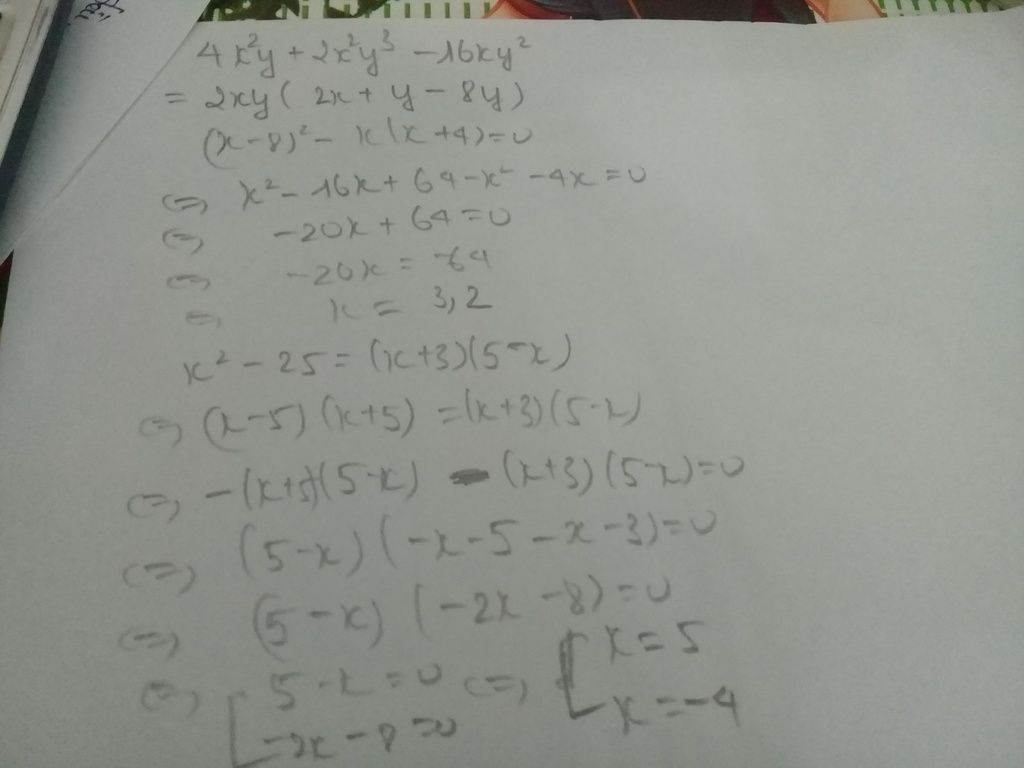 4x²y + 2x²y³ - 16xy²
= 2xy ( 2x + y - 8y )
(x-8)² - x(x+4)=0
<=> x² - 16x + 64 - x² - 4x = 0
<=> -20x + 64 = 0
<=> -20x = -64
<=> x = 3,2
x² - 25 = (x+3)(5-x)
<=> (x-5)(x+5) = (x+3)(5-x)
<=> -(x+5)(5-x) - (x+3)(5-x)=0
<=> (5-x)(-x-5-x-3)=0
<=> (5-x)(-2x-8)=0
<=> [ 5-x=0 <=> [ x=5
-2x-8=0 x=-4